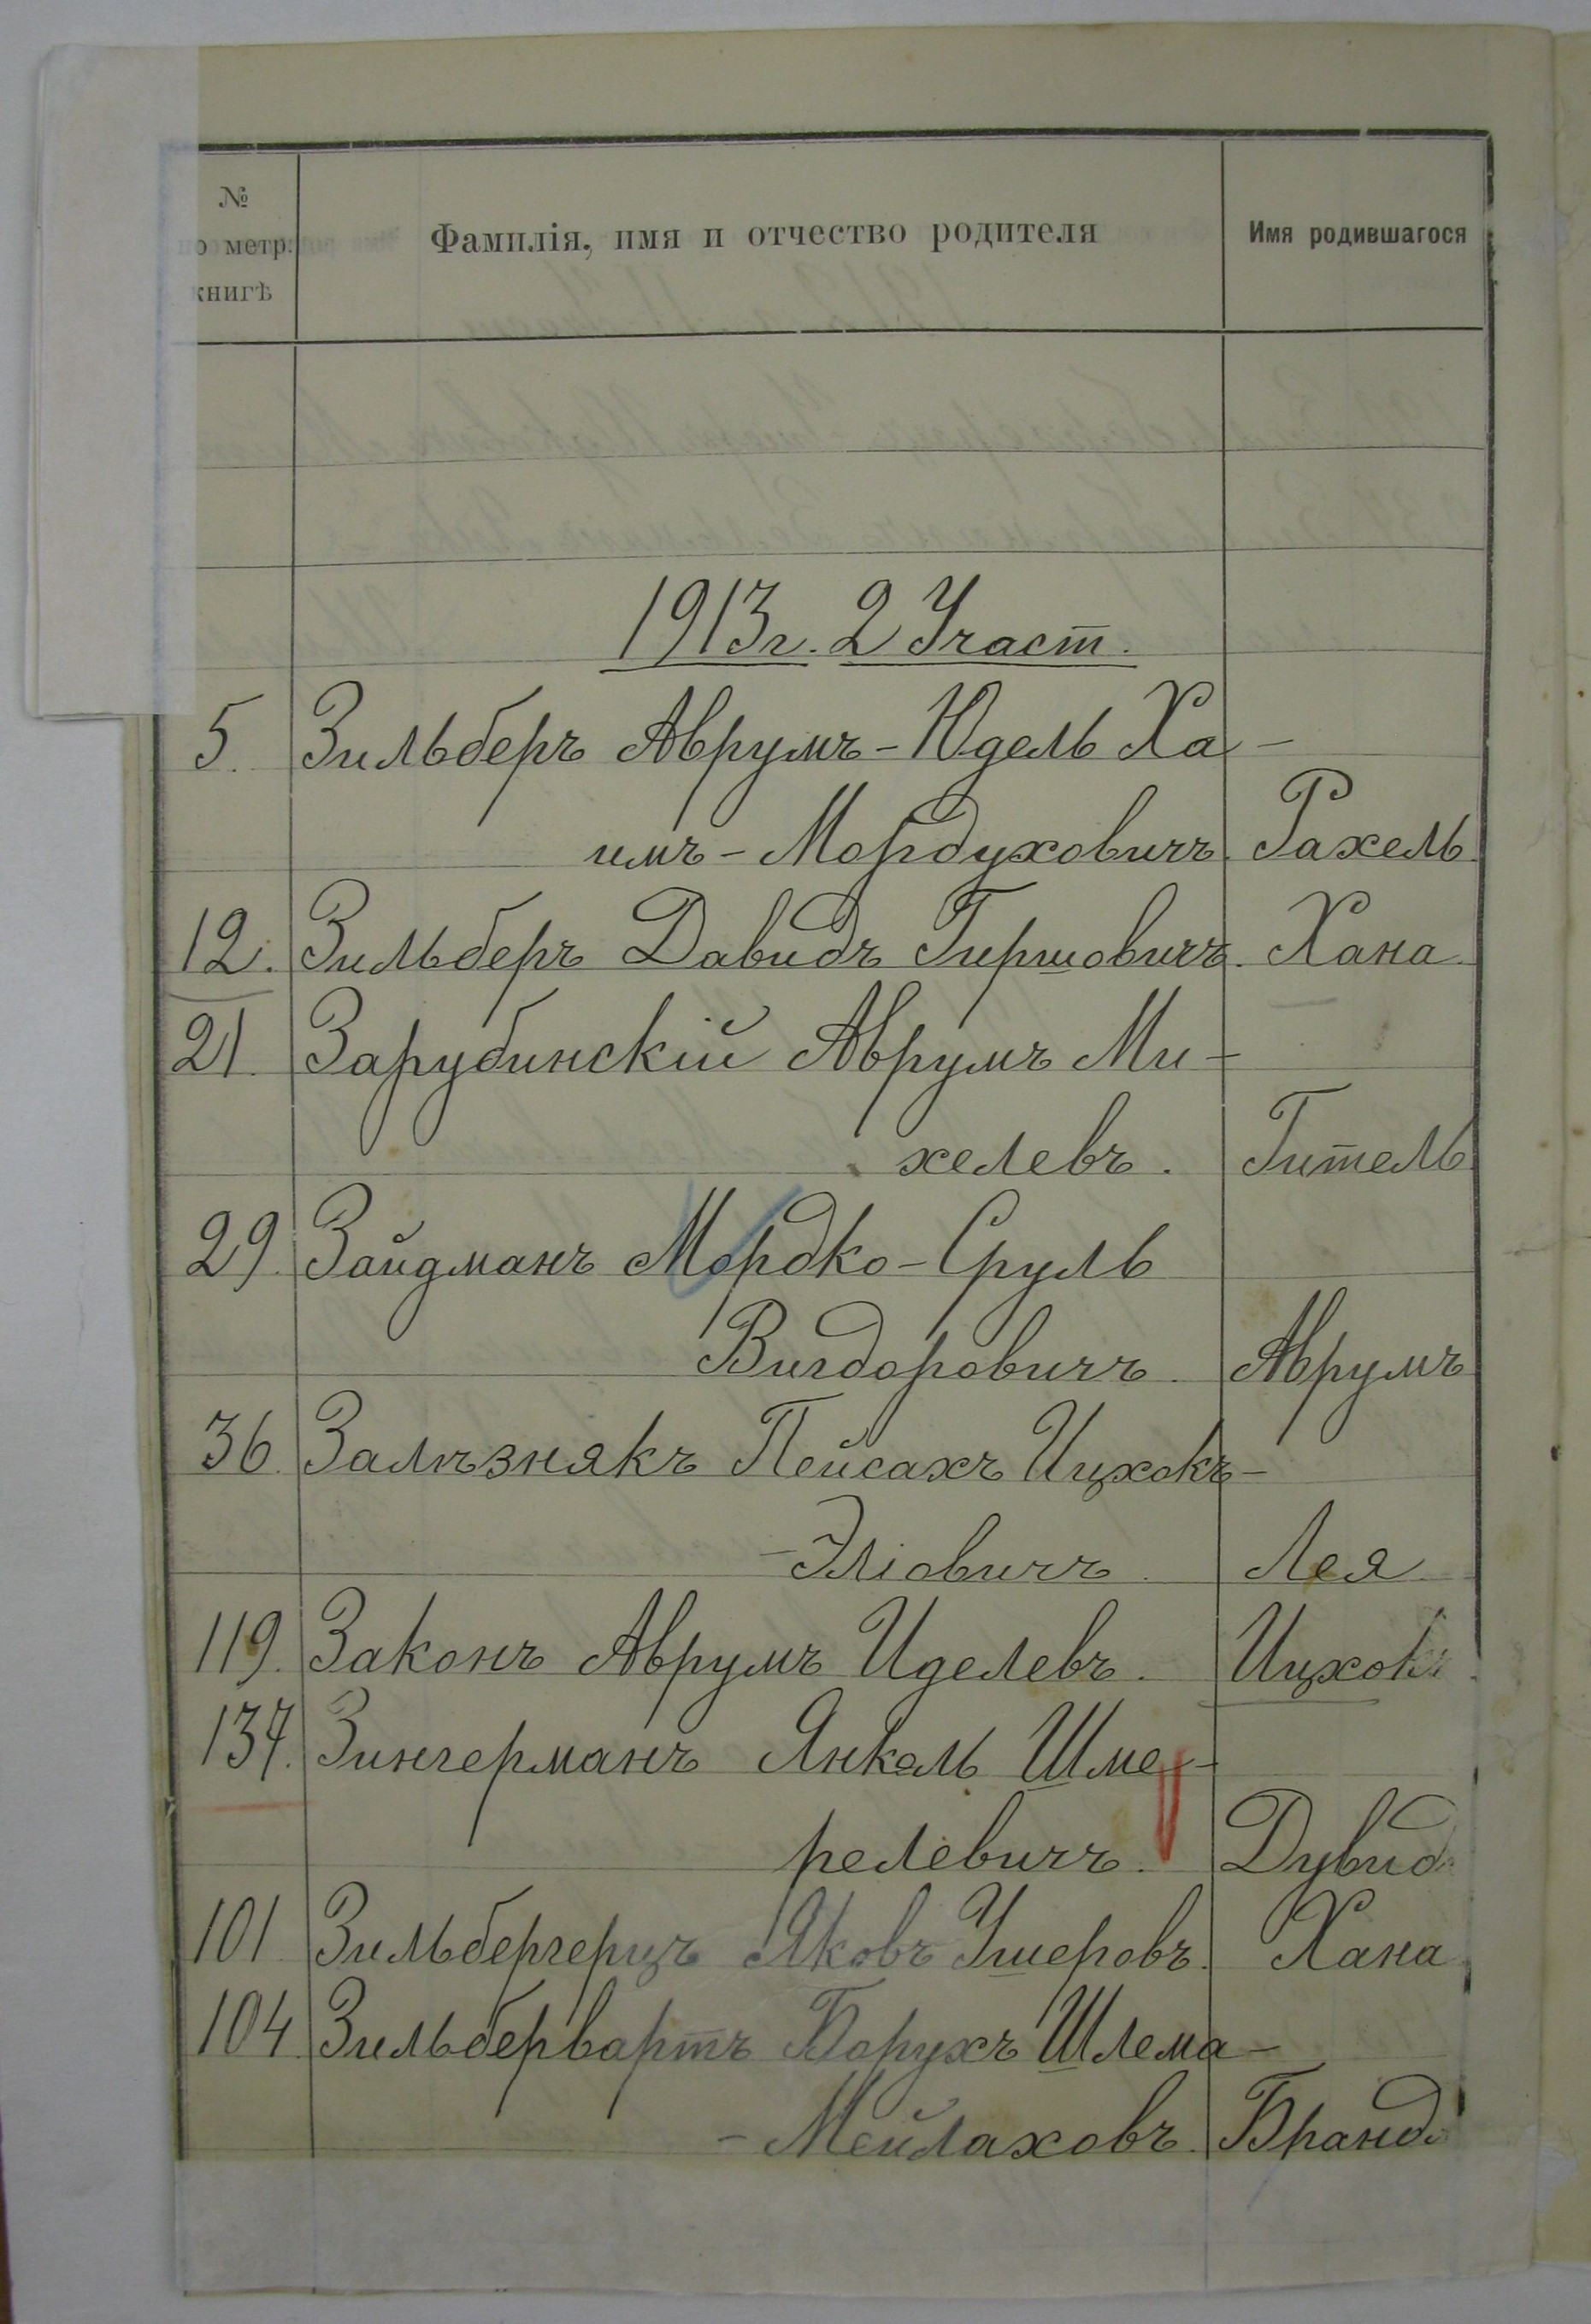 №
о метр.
книгѣ
Фамилія, имя и отчество родителя
Имя родившагося
1913г. 2 Участ.
5. Зильберъ Аврумъ-Юдель Ха-
имъ-Мордуховичъ. Рахель
12. Зильберъ Давидъ Гершовичъ. Хана
21. Зарубинскій Аврумъ Ми-
хелевъ. Гитель
29. Зайдманъ Мордко-Сруль
Вигдоровичъ. Аврумъ
36. Залѣзнякъ Пейсахъ Ицхокъ-
-Эліовичъ. Лея
119. Законъ Аврумъ Иделевъ. Ицхокъ
137. Зингерманъ Янкель Шме-
релевичъ. Дувид
101 Зильбергерцъ Яковъ Ушеровъ. Хана
104 Зильбервартъ Борухъ Шлема-
-Мейлаховъ. Бранд